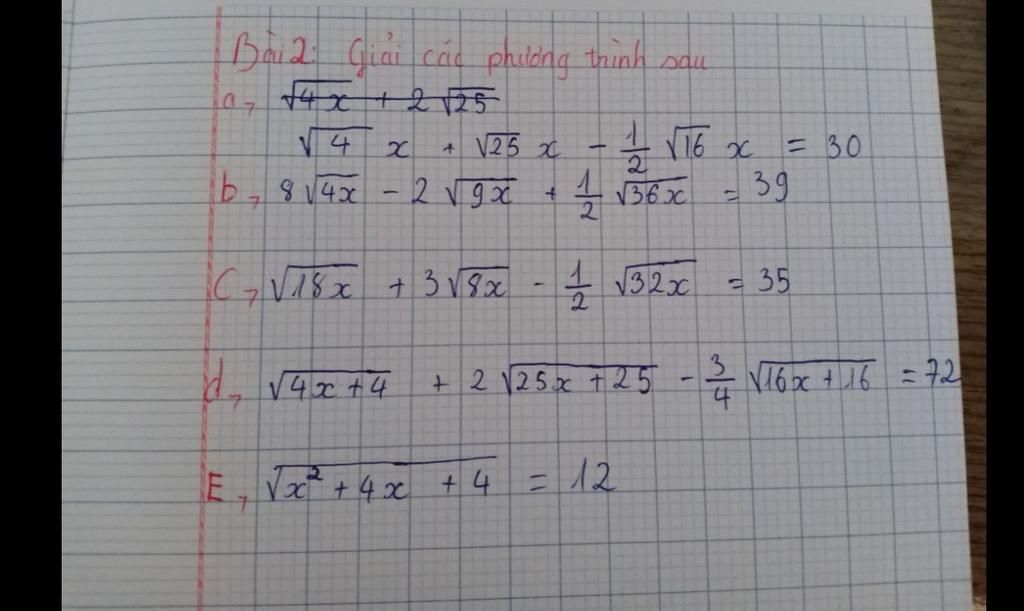 Bài 2: Giải các phương trình sau
a, √4x + 2√25
√4 x + √25 x - 1/2 √16 x = 30
b, 8√4x - 2√9x + 1/2 √36x = 39
C, √18x + 3√8x - 1/2 √32x = 35
d, √4x+4 + 2√25x+25 - 3/4 √16x+16 = 72
E, √x² + 4x + 4 = 12